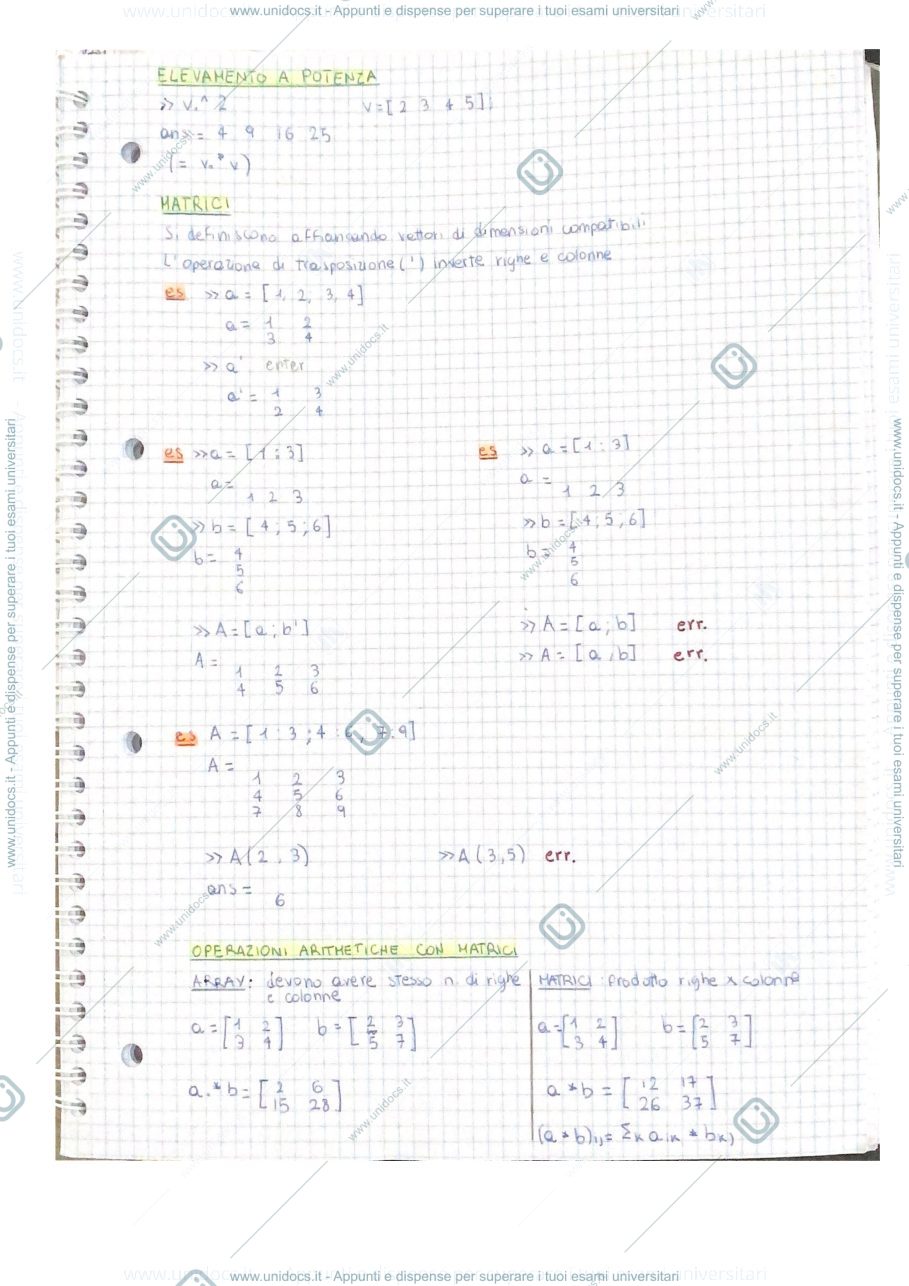 www.unidocs.it - Appunti e dispense per superare i tuoi esami universitari
ELEVAMENTO A POTENZA
>> v.^ 2 v=[2 3 4 5];
ans = 4 9 16 25
(= v.* v)
MATRICI
Si definiscono affiancando vettori di dimensioni compatibili
L'operazione di Trasposizione (') inverte righe e colonne
es >> a = [1, 2, 3, 4]
a = 1 2
3 4
>> a' enter
a' = 1 3
2 4
es >> a = [1 : 3]
a =
1 2 3
>> b = [4 ; 5 ; 6]
b = 4
5
6
>> A = [a ; b']
A =
1 2 3
4 5 6
es >> a = [1 : 3]
a =
1 2 3
>> b = [4 ; 5 ; 6]
b = 4
5
6
>> A = [a ; b] err.
>> A = [a , b] err.
es A = [1 : 3 ; 4 : 6 , 7 : 9]
A =
1 2 3
4 5 6
7 8 9
>> A(2 , 3)
ans =
6
>> A (3,5) err.
OPERAZIONI ARITMETICHE CON MATRICI
ARRAY: devono avere stesso n. di righe
e colonne
a = [1 2 b = [2 3
3 4] 5 7]
a.*b = [2 6
15 28]
MATRICI prodotto righe x colonne
a = [1 2 b = [2 3
3 4] 5 7]
a *b = [12 17
26 37]
(a * b)ij = Σk aik * bkj
www.unidocs.it - Appunti e dispense per superare i tuoi esami universitari
www.unidocs.it - Appunti e dispense per superare i tuoi esami universitari
www.unidocs.it - Appunti e dispense per superare i tuoi esami universitari